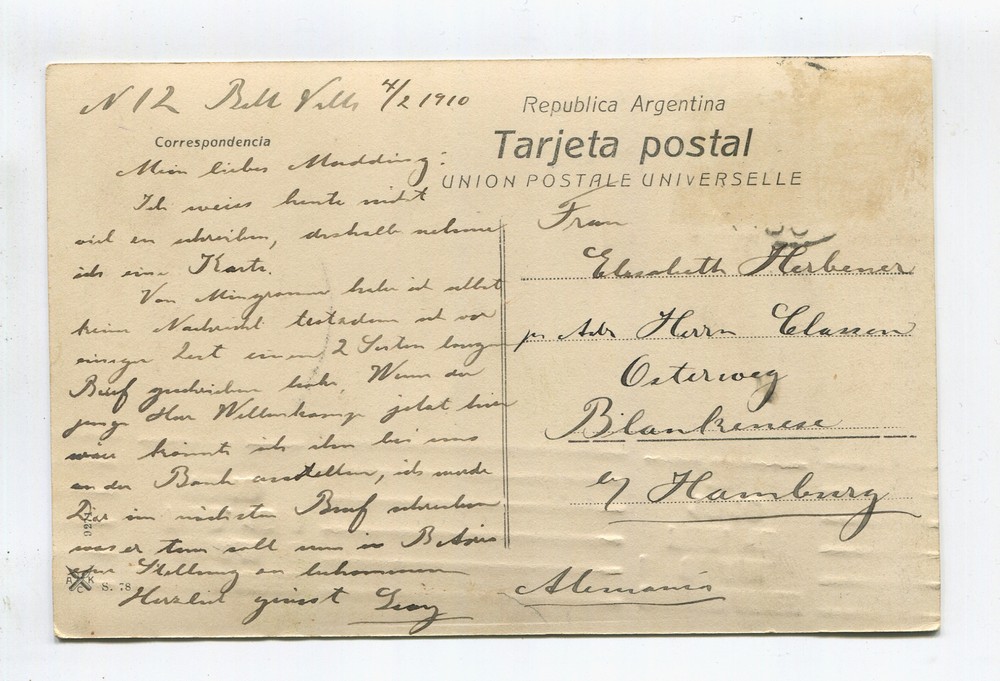 N 12 Bell Ville 4/2 1910
Republica Argentina
Correspondencia
Tarjeta postal
UNION POSTALE UNIVERSELLE
Mein liebes
Ich weiss heute nicht
viel zu schreiben, deshalb nehme
ich eine Karte.
Von habe ich selbst
keine Nachricht trotzdem ich vor
einiger Zeit einen 2 Seiten langen
Brief geschrieben habe. Wenn der
junge Herr jetzt hier
wäre könnte ich ihn bei uns
an der Bank anstellen, ich werde
Dir im nächsten Brief schreiben
was er tun soll um in B Aires
eine Stellung zu bekommen
Herzlich grüsst
Frau
Elisabeth Herbener
pr Adr Herrn Classen
Osterweg
Blankenese
b/ Hamburg
Alemania
S. 78